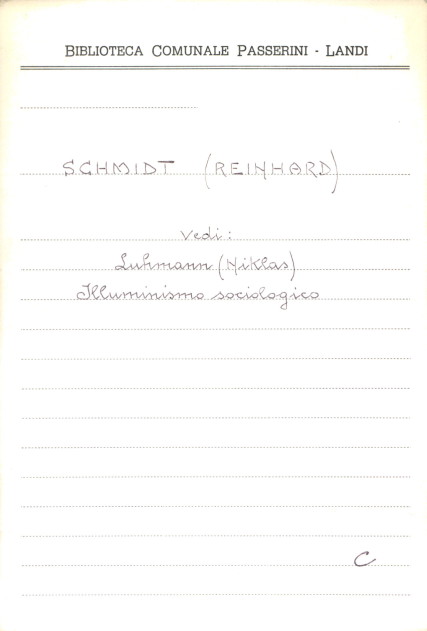 BIBLIOTECA COMUNALE PASSERINI - LANDI
SCHMIDT (REINHARD)
Vedi:
Luhmann (Niklas)
Illuminismo sociologico
C